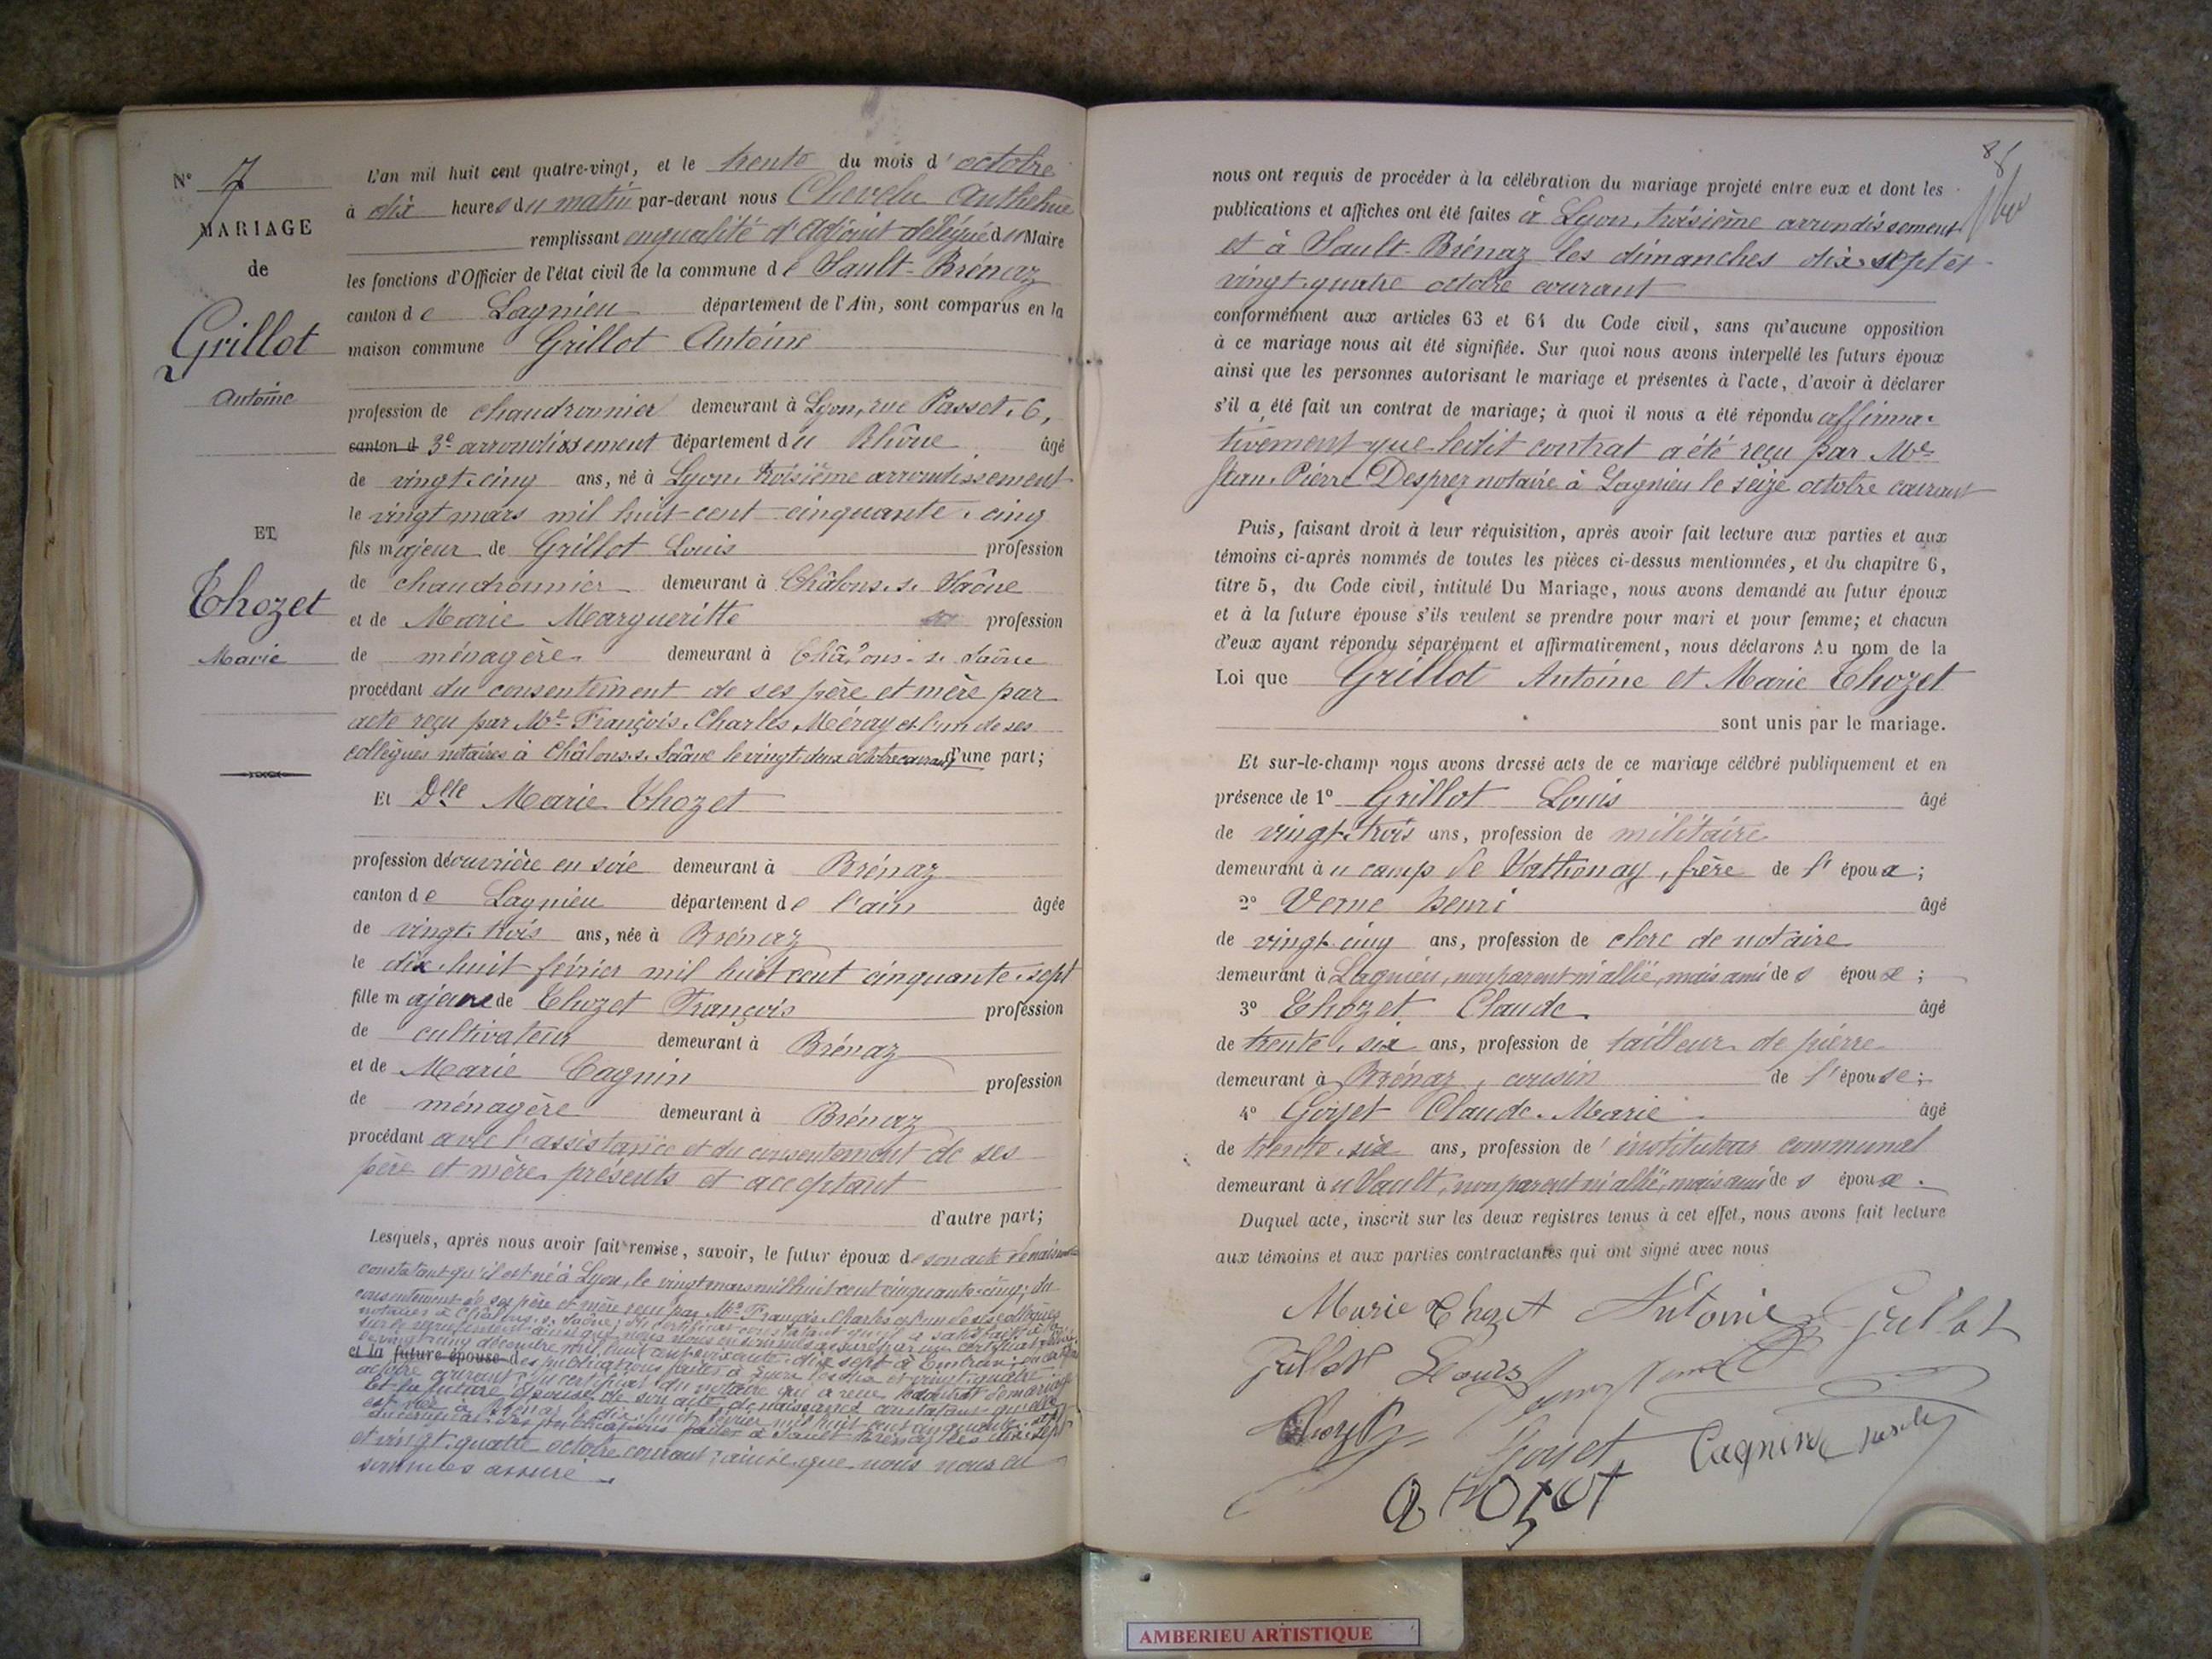 N° 7
MARIAGE
de
Grillot
Antoine
ET
Thozet
Marie
L'an mil huit cent quatre-vingt, et le trente du mois d'octobre
à dix heures du matin par-devant nous Chevelu Anthelme
remplissant en qualité d'Adjoint délégué du Maire
les fonctions d'Officier de l'état civil de la commune de Sault-Brénaz
canton de Lagnieu département de l'Ain, sont comparus en la
maison commune Grillot Antoine
profession de chaudronnier demeurant à Lyon, rue Passet, 6,
canton d 3e arrondissement département du Rhône âgé
de vingt-cinq ans, né à Lyon, troisième arrondissement
le vingt mars mil huit cent cinquante-cinq
fils majeur de Grillot Louis profession
de chaudronnier demeurant à Châlons-s-Saône
et de Marie Margueritte profession
de ménagère demeurant à Châlons-s-Saône
procédant du consentement de ses père et mère par
acte reçu par Me François-Charles Méray et l'un de ses
collègues notaires à Châlons-s-Saône le vingt-deux octobre courant d'une part;
Et Dlle Marie Thozet
profession d'ouvrière en soie demeurant à Brénaz
canton de Lagnieu département de l'ain âgée
de vingt-trois ans, née à Brénaz
le dix-huit février mil huit cent cinquante-sept
fille majeure de Thozet François profession
de cultivateur demeurant à Brénaz
et de Marie Cagnin profession
de ménagère demeurant à Brénaz
procédant avec l'assistance et du consentement de ses
père et mère présents et acceptant
d'autre part;
Lesquels, après nous avoir fait remise, savoir, le futur époux de son acte de naissance
constatant qu'il est né à Lyon, le vingt mars mil huit cent cinquante-cinq; du
consentement de ses père et mère reçu par Me François-Charles et l'un de ses collègues
notaires à Châlons-s-Saône; du certificat constatant qu'il a satisfait à la
sur le recrutement ainsi que nous nous en sommes assuré par un certificat
vingt-cinq décembre mil huit cent soixante-dix-sept à
et la future épouse des publications faites à Lyon les dix et vingt-quatre
octobre courant; du certificat du notaire qui a reçu le contrat de mariage
Et la future épouse de son acte de naissance constatant qu'elle
est née à Brénaz le dix-huit février mil huit cent cinquante-sept
du certificat des publications faites à Sault-Brénaz les dix-sept
et vingt-quatre octobre courant; ainsi que nous nous en
sommes assuré
nous ont requis de procéder à la célébration du mariage projeté entre eux et dont les
publications et affiches ont été faites à Lyon, troisième arrondissement
et à Sault-Brénaz les dimanches dix-sept et
vingt-quatre octobre courant
conformément aux articles 63 et 64 du Code civil, sans qu'aucune opposition
à ce mariage nous ait été signifiée. Sur quoi nous avons interpellé les futurs époux
ainsi que les personnes autorisant le mariage et présentes à l'acte, d'avoir à déclarer
s'il a été fait un contrat de mariage; à quoi il nous a été répondu affirma-
tivement que ledit contrat a été reçu par Me
Jean-Pierre Desprez notaire à Lagnieu le seize octobre courant
Puis, faisant droit à leur réquisition, après avoir fait lecture aux parties et aux
témoins ci-après nommés de toutes les pièces ci-dessus mentionnées, et du chapitre 6,
titre 5, du Code civil, intitulé Du Mariage, nous avons demandé au futur époux
et à la future épouse s'ils veulent se prendre pour mari et pour femme; et chacun
d'eux ayant répondu séparément et affirmativement, nous déclarons Au nom de la
Loi que Grillot Antoine et Marie Thozet
sont unis par le mariage.
Et sur-le-champ nous avons dressé acte de ce mariage célébré publiquement et en
présence de 1° Grillot Louis âgé
de vingt-trois ans, profession de militaire
demeurant au camp de Sathonay, frère de l'époux;
2° Verne henri âgé
de vingt-cinq ans, profession de clerc de notaire
demeurant à Lagnieu, non parent ni allié, mais ami des époux;
3° Thozet Claude âgé
de trente-six ans, profession de tailleur de pierre
demeurant à Brénaz, cousin de l'épouse;
4° Goyet Claude-Marie âgé
de trente-six ans, profession d'instituteur communal
demeurant au Sault, non parent ni allié, mais ami des époux.
Duquel acte, inscrit sur les deux registres tenus à cet effet, nous avons fait lecture
aux témoins et aux parties contractantes qui ont signé avec nous
Marie Thozet Antoine Grillot
Grillot Louis
Thozet
Goyet Cagnin
AMBERIEU ARTISTIQUE